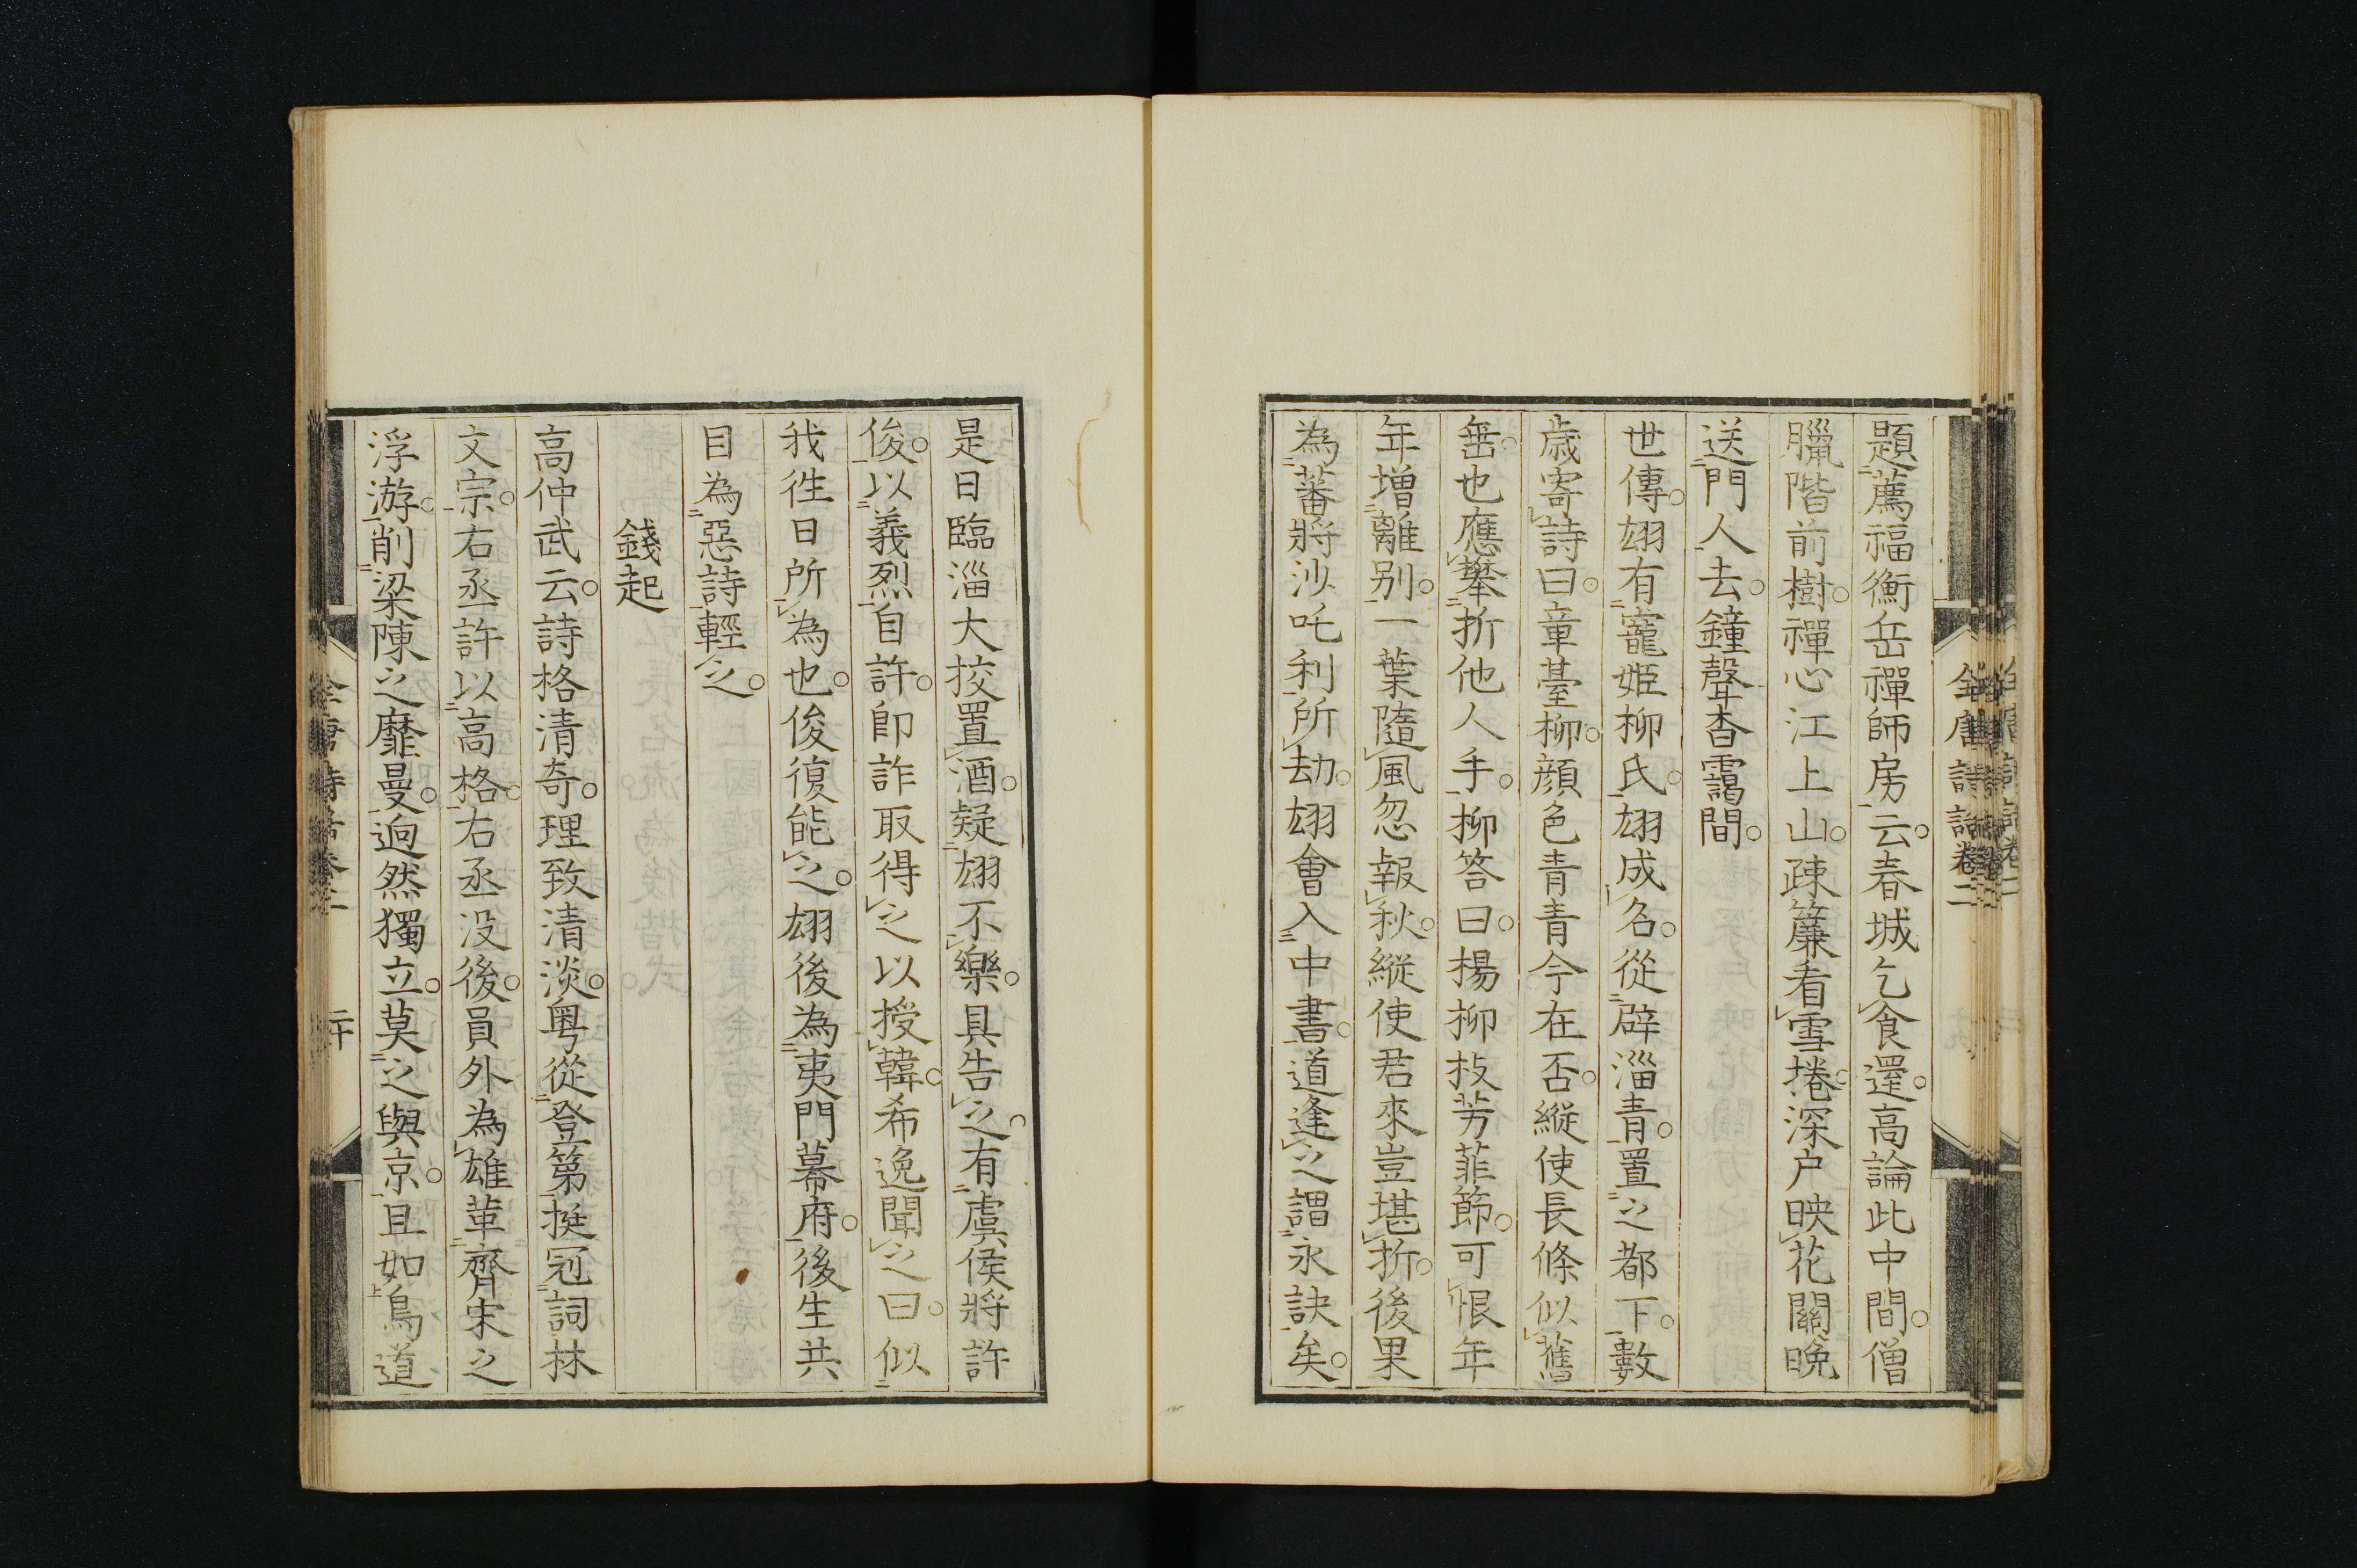 題薦福衡岳禪師房云春城乞食還高論此中間僧
臘階前樹禪心江上山疎簾看雪捲深户映花關晚
送門人去鐘聲杳靄間
世傳翃有寵姬柳氏翃成名從辟淄青置之都下數
歲寄詩曰章臺柳顔色青青今在否縦使長條似舊
垂也應攀折他人手柳答曰楊柳枝芳菲節可恨年
年増離别一葉隨風忽報秋縦使君來豈堪折後果
為蕃將沙吒利所劫翃會入中書道逢之謂永訣矣
是日臨淄大挍置酒疑翃不樂具告之有虞侯將許
俊以義烈自許卽詐取得之以授韓希逸聞之曰似
我徃日所為也俊復能之翃後為夷門幕府後生共
目為惡詩輕之
錢起
高仲武云詩格清奇理致清淡粤從登第挺冠詞林
文宗右丞許以高格右丞没後員外為雄革齊宋之
浮游削梁陳之靡曼逈然獨立莫之與京且如鳥道
全唐詩話卷二
二十